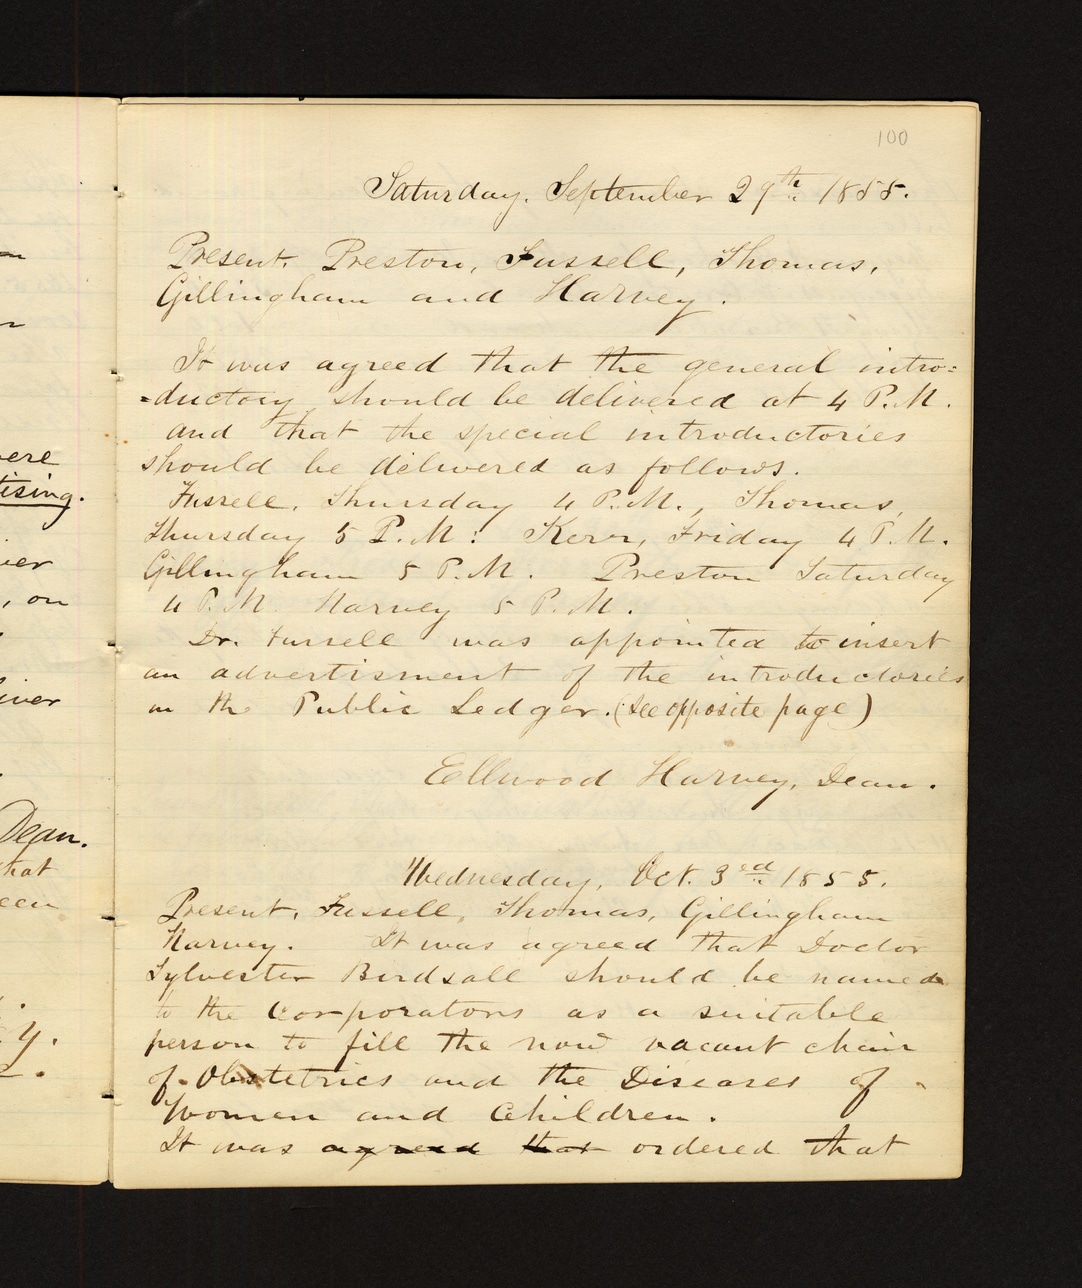 ere
tising.
ier
, on
iver
Dean.
hat
een
y.
100
Saturday, September 29th. 1855.
Present. Preston, Fussell, Thomas,
Gillingham and Harvey.
It was agreed that the general intro=
=ductory should be delivered at 4 P.M.
and that the special introductories
should be delivered as follows.
Fussell, Thursday 4 P.M., Thomas,
Thursday 5 P.M: Kerr, Friday 4 P.M.
Gillingham 5 P.M. Preston Saturday
4 P.M. Harvey 5 P.M.
Dr. Fussell was appointed to insert
an advertisment of the introductories
in the Public Ledger. (see opposite page)
Ellwood Harvey, Dean.
Wednesday, Oct. 3rd. 1855.
Present, Fussell, Thomas, Gillingham
Harvey. It was agreed that Doctor
Sylvester Birdsall should be named
to the Corporators as a suitable
person to fill the now vacant chair
of Obstetrics and the Diseases of
Women and Children.
It was agreed that ordered that